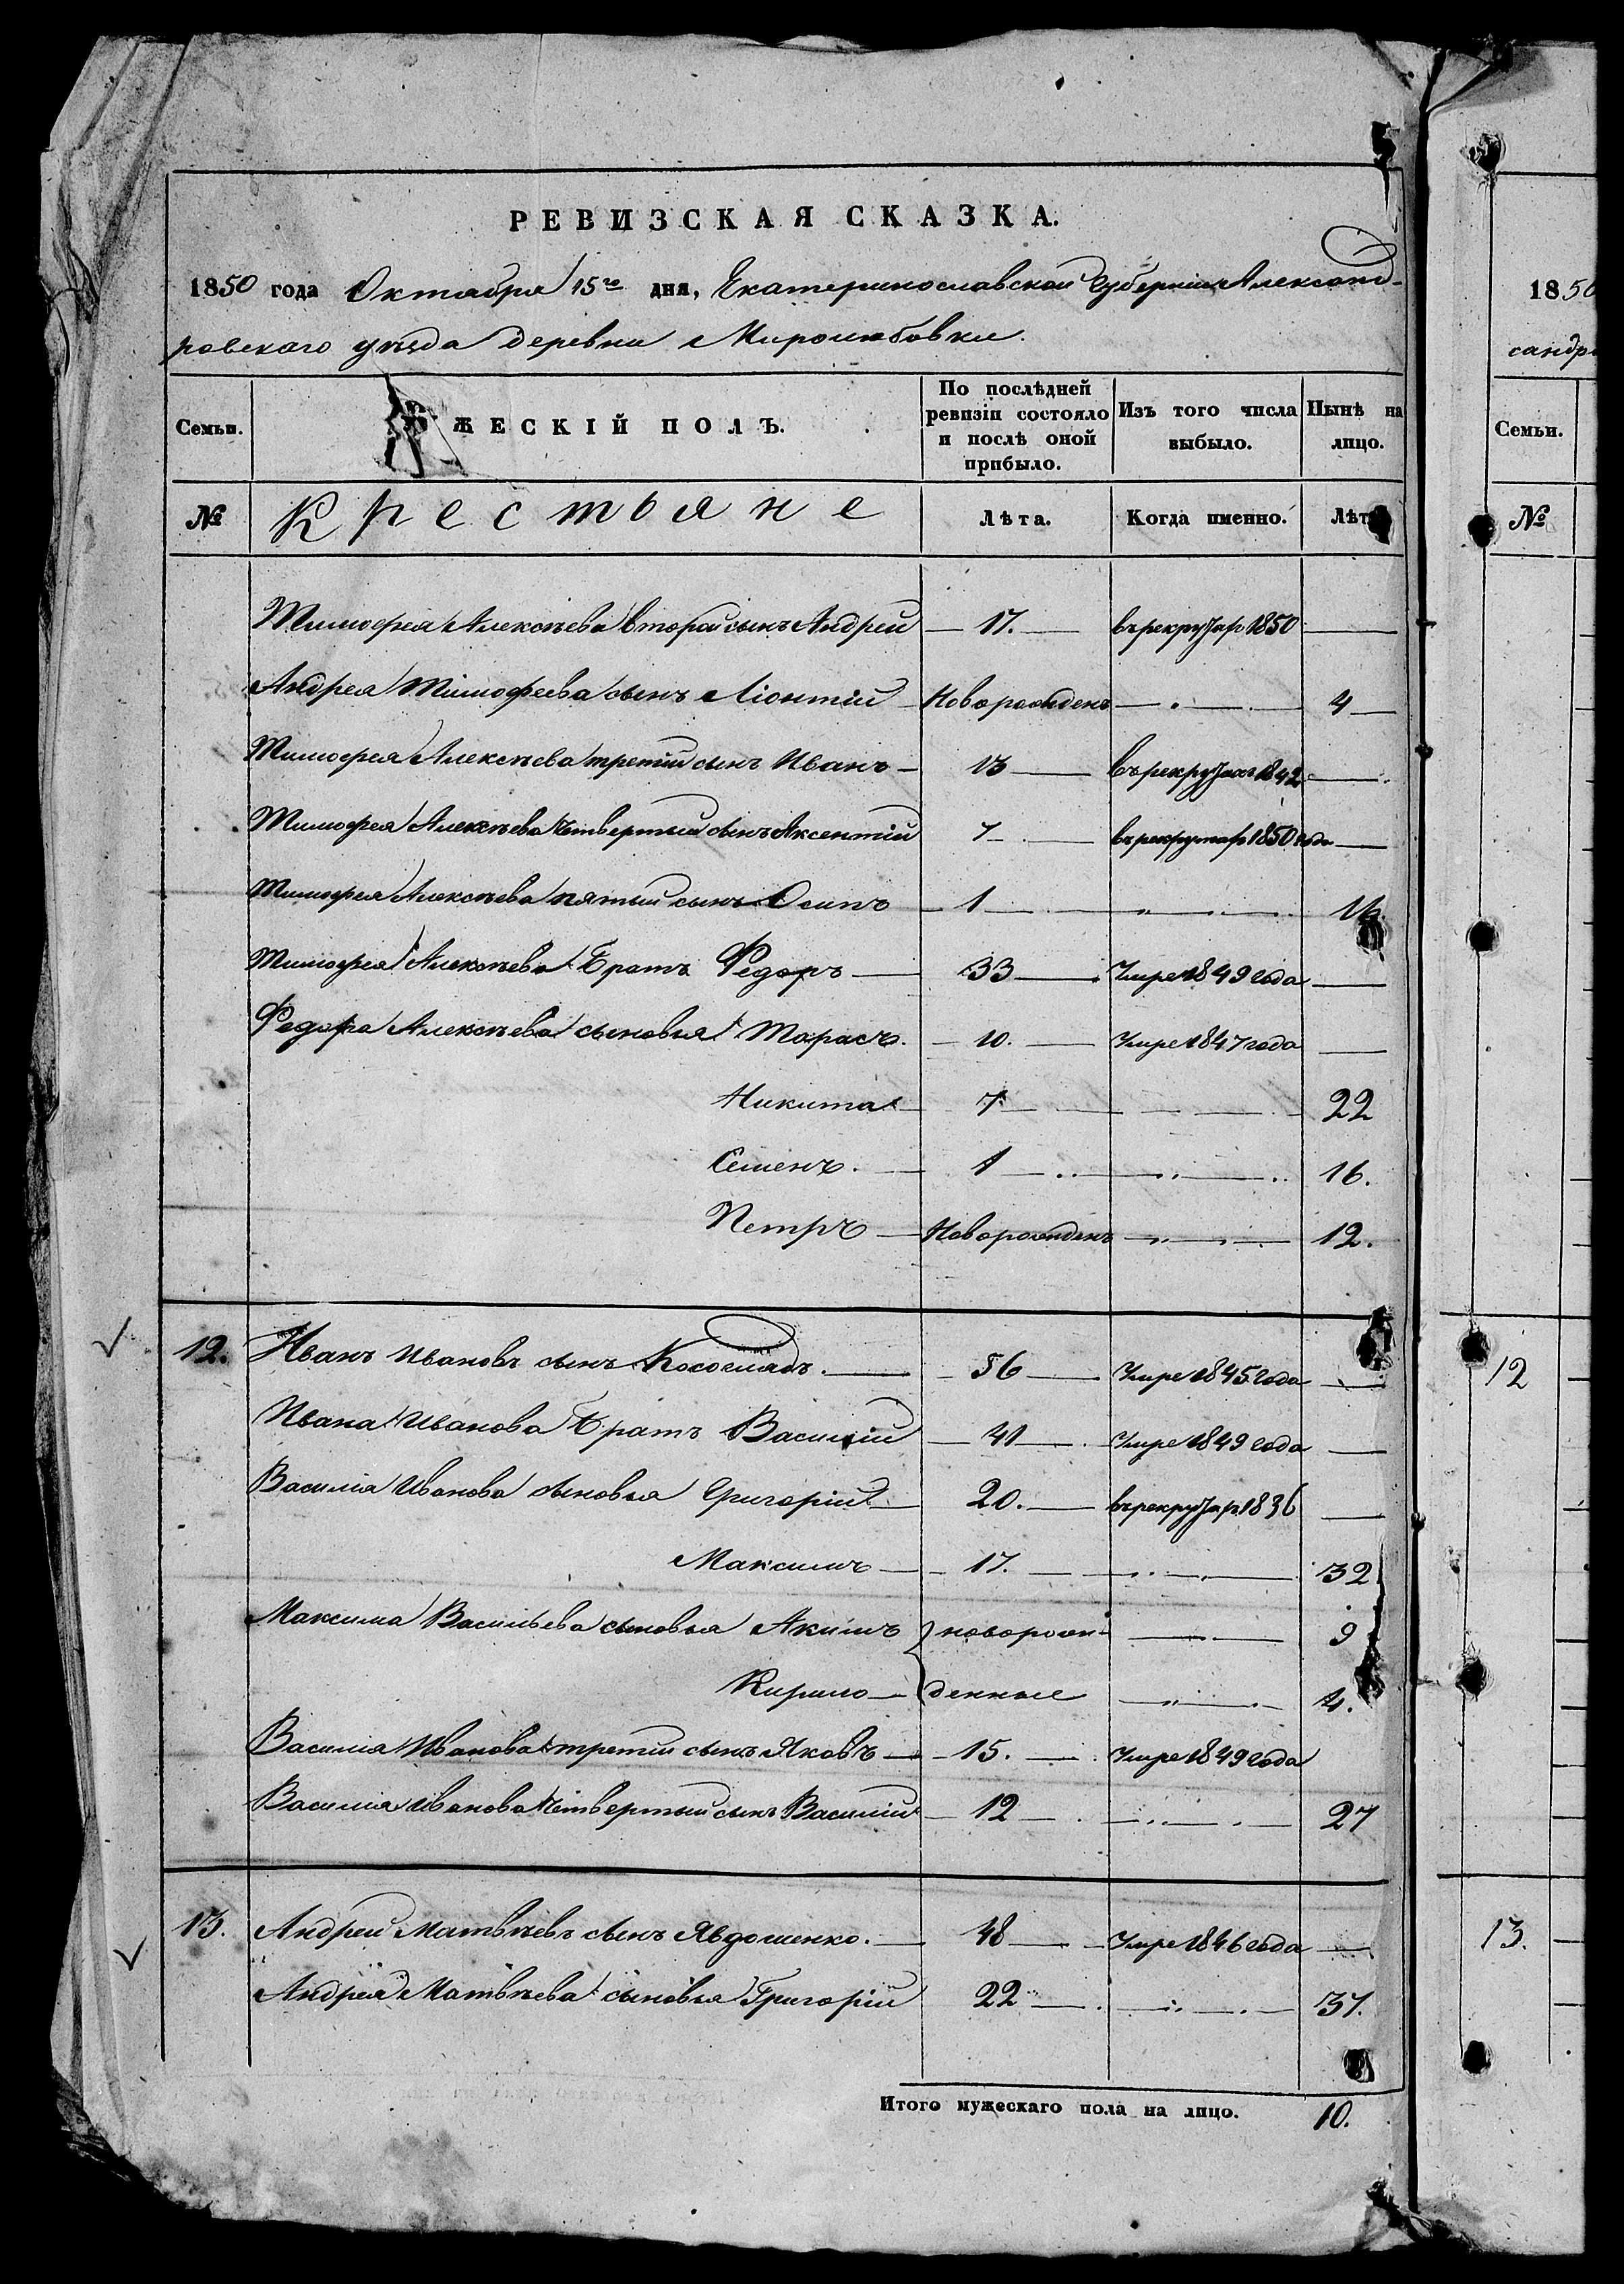 РЕВИЗСКАЯ СКАЗКА.
1850 года Октября 15го дня, Екатеринославской Губернии Александ-
ровского уѣзда деревни Миролюбовки.
Семьи. ЖЕСКІЙ ПОЛЪ. По послѣдней ревизіи состояло и послѣ оной прибыло. Изъ того числа выбыло. Нынѣ на лицо.
№ Крестьяне Лѣта. Когда именно. Лѣт
Тимофея Алексѣева второй сынъ Андрей — 17. — въ рекрутах 1850 —
Андрея Тимофеева сынъ Ліонтій Новорожденъ — 4
Тимофея Алексѣева третій сынъ Иванъ — 13 — въ рекрутахъ 1842 —
Тимофея Алексѣева Четвертый сынъ Аксентій 7 — въ рекрутах 1850 года —
Тимофея Алексѣева пятый сынъ Осипъ — 1 — „ — 16.
Тимофея Алексѣева Братъ Федоръ — 33 — Умре 1849 года —
Федора Алексѣева сыновья Тарасъ. — 10. — Умре 1847 года —
Никита — 7 — 22
Семенъ. — 1 — 16.
Петръ — Новорожденъ — „ — 12.
12. Иванъ Ивановъ сынъ Косогладъ. — 56 — Умре 1845 года —
Ивана Иванова Братъ Василій — 41 — Умре 1849 года —
Василія Иванова сыновья Григорій — 20. — въ рекрутах 1836 —
Максимъ — 17. — 32
Максима Васильева сыновья Акимъ } новорож- — 9
Кирило — денные — „ — 4.
Василія Иванова третій сынъ Яковъ — 15. — Умре 1849 года
Василія Иванова Четвертый сынъ Василій — 12 — 27
13. Андрей Матвѣевъ сынъ Явдошенко. — 48 — Умре 1846 года —
Андрея Матвѣева сыновья Григорій 22 — 37.
Итого мужескаго пола на лицо. 10.
1850
сандро
Семьи.
№
12
13.